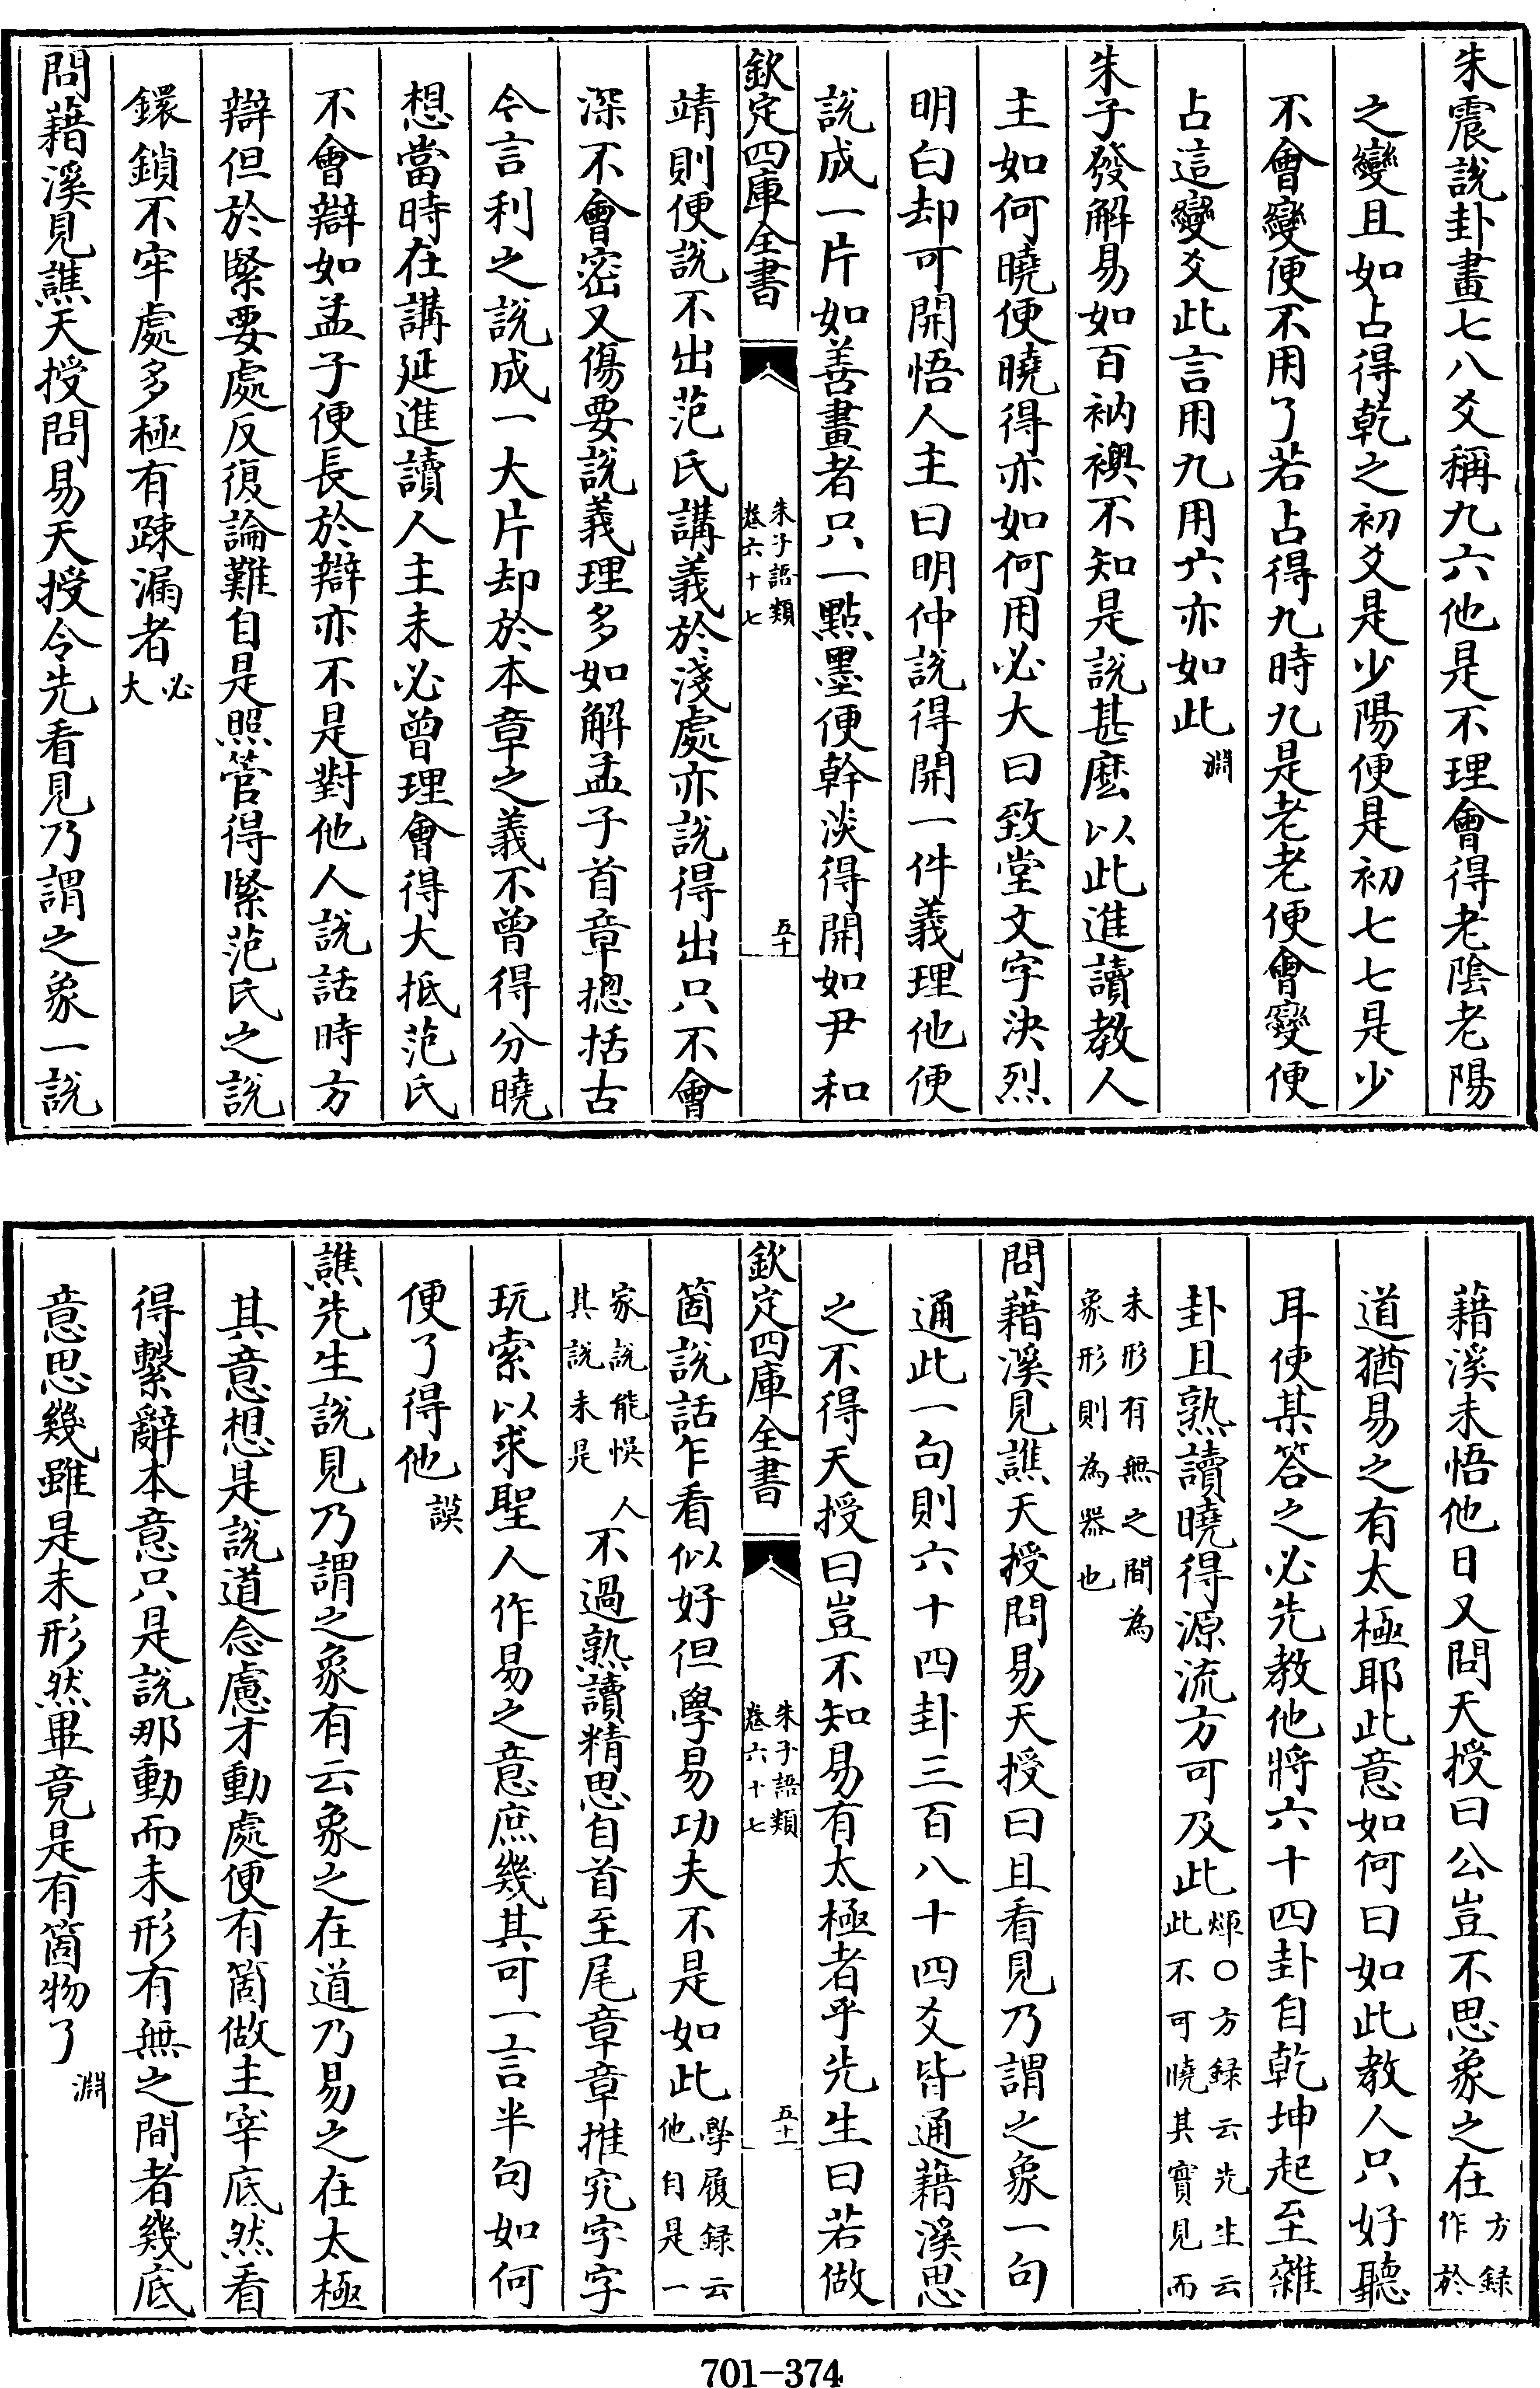 朱震說卦畫七八爻稱九六他是不理會得老陰老陽
之變且如占得乾之初爻是少陽便是初七七是少
不會變便不用了若占得九時九是老老便會變便
占這變爻此言用九用六亦如此淵
朱子發解易如百衲襖不知是說甚麼以此進讀教人
主如何曉便曉得亦如何用必大曰致堂文字決烈
明白却可開悟人主曰明仲說得開一件義理他便
說成一片如善畫者只一點墨便幹淡得開如尹和
欽定四庫全書
朱子語類
卷六十七
五十
靖則便說不出范氏講義於淺處亦說得出只不會
深不會密又傷要說義理多如解孟子首章揔括古
今言利之說成一大片却於本章之義不曾得分曉
想當時在講延進讀人主未必曾理會得大抵范氏
不會辯如孟子便長於辯亦不是對他人說話時方
辯但於緊要處反復論難自是照管得緊范氏之說
鐶鎖不牢處多極有踈漏者必大
問藉溪見譙天授問易天授令先看見乃謂之象一說
藉溪未悟他日又問天授曰公豈不思象之在方録作於
道猶易之有太極耶此意如何曰如此教人只好聽
耳使某答之必先教他將六十四卦自乾坤起至雜
卦且熟讀曉得源流方可及此煇○方録云先生云此不可曉其實見而
未形有無之間為象形則為器也
問藉溪見譙天授問易天授曰且看見乃謂之象一句
通此一句則六十四卦三百八十四爻皆通藉溪思
之不得天授曰豈不知易有太極者乎先生曰若做
欽定四庫全書
朱子語類
卷六十七
五十一
箇說話乍看似好但學易功夫不是如此學履録云他自是一
家說能悞人其說未是不過熟讀精思自首至尾章章推究字字
玩索以求聖人作易之意庶幾其可一言半句如何
便了得他謨
譙先生說見乃謂之象有云象之在道乃易之在太極
其意想是說道念慮才動處便有箇做主宰底然看
得繫辭本意只是說那動而未形有無之間者幾底
意思幾雖是未形然畢竟是有箇物了淵
701-374